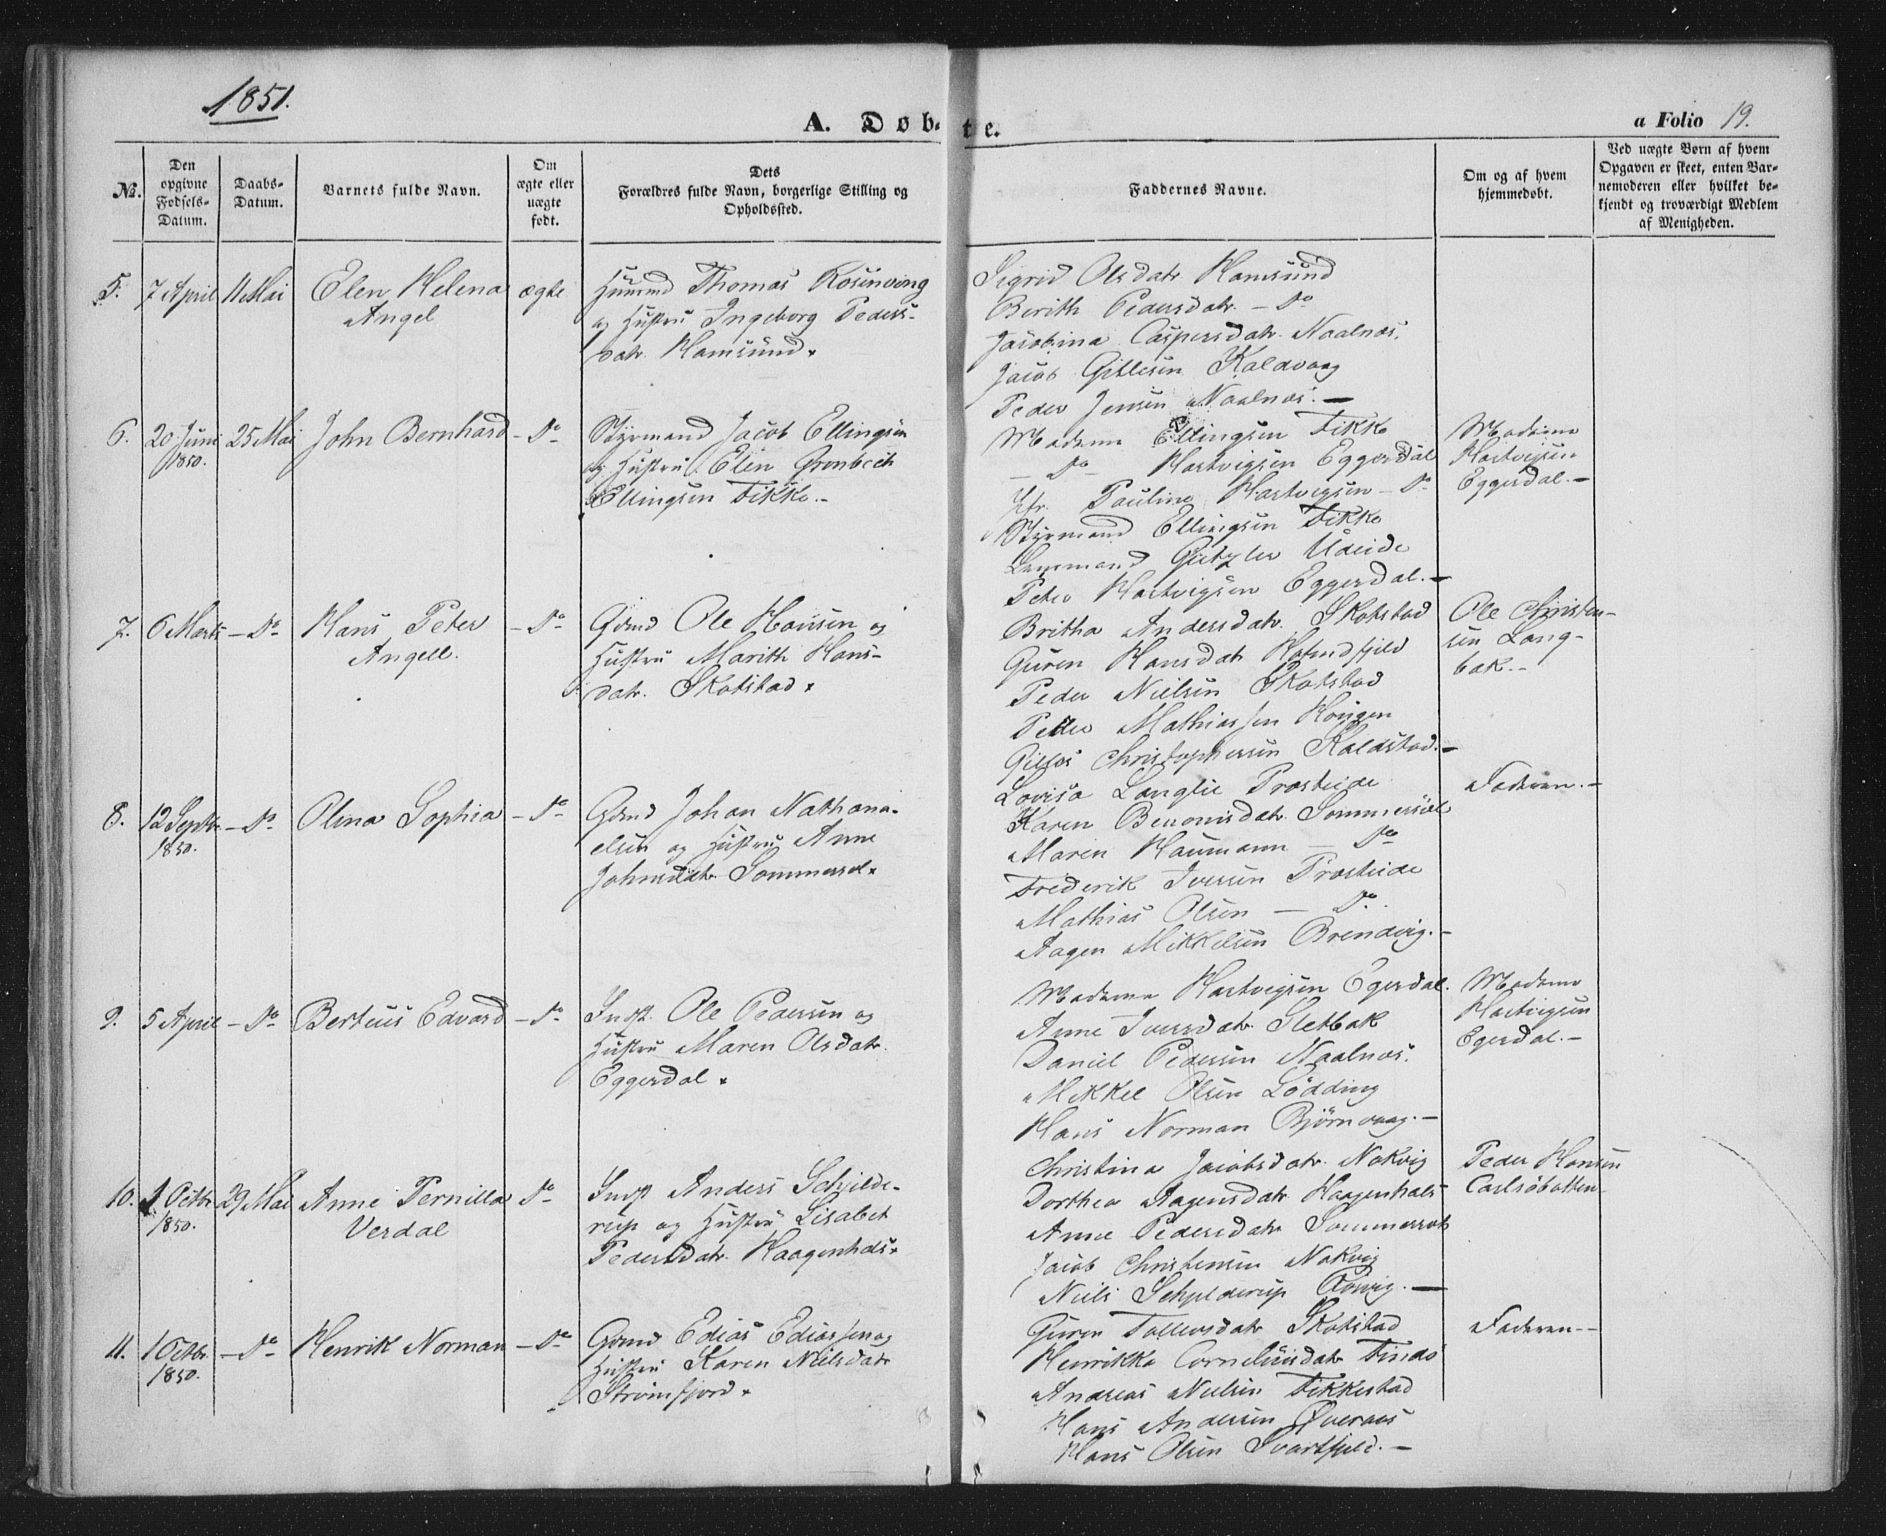 1851.
A. Døbte.
a Folio 19.
No.
Den opgivne Fødsels-Datum.
Daabs-Datum.
Barnets fulde Navn.
Om ægte eller uægte født.
Dets Forældres fulde Navn, borgerlige Stilling og Opholdssted.
Faddernes Navne.
Om og af hvem hjemmedøbt.
Ved uægte Børn af hvem Opgaven er skeet, enten Barnemoderen eller hvilket bekjendt og troværdigt Medlem af Menigheden.
5. 7 April 11 Mai Elen Helena ægte Huusmd Thomas Rosenving
Angel og Hustru Ingeborg Peders-
datr. Hamsund.
Sigrid Olsdatr Hamsund
Berith Pedersdatr. - Do
Jacobina Caspersdatr. Naalnæs.
Jacob Gitlesen Kaldvaag
Peder Jensen Naalnæs. —
6. 20 Juni 25 Mai John Bernhard - Do Styrmand Jacob Ellingsen
1850. og Hustru Elen Grønbech
Ellingsen Fikke. -
Madame Ellingsen Fikke
- Do - Hartvigsen Eggerdal
Jfr. Pauline Hartvigsen - Do
Styrmand Ellingsen Fikke
Lensmand Udeide
Peter Hartvigsen Eggerdal. —
Madame
Hartvigsen
Eggerdal. —
7. 6 Marts - Do Hans Peter - Do Gdmd Ole Hansen og
Angell. Hustru Marith Hans-
datr. Skotstad.
Britha Andersdatr. Skotstad
Guren Hansdatr
Peder Nielsen Skotstad
Peder Mathiassen Haugen
Gillos Christophersen Kaldstad. —
Ole Christen-
sen Lang-
bak. -
8. 12 Septbr. - Do Olina Sophia - Do Gdmd Johan Nathana-
1850. elsen og Hustru Anne
Johnsdatr. Sommersel.
Lovisa Langlie Presteide
Karen Benonisdatr. Sommersæl
Maren Haumann - Do
Frederik Iversen Presteide
Mathias Olsen — Do.
Aagen Mikkelsen Brendvig. -
Faderen. -
9. 5 April - Do Berteus Edvard - Do Indst. Ole Pedersen og
Hustru Maren Olsdatr.
Eggerdal.
Madame Hartvigsen Egerdal.
Anne Iversdatr Sletbak
Daniel Pedersen Naalnæs.
Mikkel Olsen Lødding
Hans Norman Bjørnvaag. —
Madame
Hartvigsen
Egerdal. —
10. 1 Octbr. 29 Mai Anne Pernilla Do Indst Anders Schjelde-
1850. Verdal rup og Hustru Lisabet
Pedersdatr. Haagenhals.
Christina Jacobsdatr. Nokvig
Dorthea Aagensdatr Haagenhals
Anne Pedersdatr Sommerset
Jacob Christensen Nokvig
Niels Schjelderup
Peder Hansen
Carlsøbotten
11. 1 Octbr. - Do Henrik Norman - Do Gdmd Edias Ediassen og
1850. Hustru Karen Nielsdatr
Strømfjord.
Guren Tollevsdatr Skotstad
Henrikka Corneliusdatr Findø
Andreas Nielsen Fikkestad
Hans Andersen Øvernes
Hans Olsen Svartfjeld. —
Faderen —